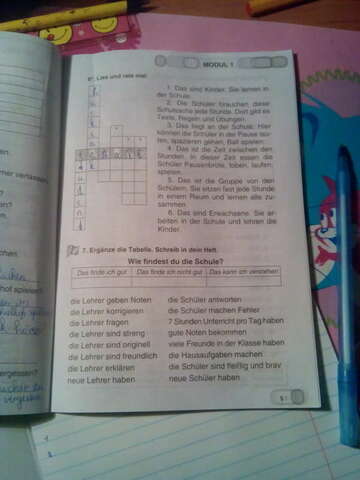 MODUL 1
6*. Lies und rate mal.
1. Das sind Kinder. Sie lernen in
der Schule.
2. Die Schüler brauchen diese
Schulsache jede Stunde. Dort gibt es
Texte, Regeln und Übungen.
3. Das liegt an der Schule. Hier
können die Schüler in der Pause tur-
nen, spazieren gehen, Ball spielen.
4. Das ist die Zeit zwischen den
Stunden. In dieser Zeit essen die
Schüler Pausenbrote, toben, laufen,
spielen.
5. Das ist die Gruppe von den
Schülern. Sie sitzen fast jede Stunde
in einem Raum und lernen alle zu-
sammen.
6. Das sind Erwachsene. Sie ar-
beiten in der Schule und lehren die
Kinder.
7. Ergänze die Tabelle. Schreib in dein Heft.
Wie findest du die Schule?
Das finde ich gut Das finde ich nicht gut Das kann ich verstehen
die Lehrer geben Noten die Schüler antworten
die Lehrer korrigieren die Schüler machen Fehler
die Lehrer fragen 7 Stunden Unterricht pro Tag haben
die Lehrer sind streng gute Noten bekommen
die Lehrer sind originell viele Freunde in der Klasse haben
die Lehrer sind freundlich die Hausaufgaben machen
die Lehrer erklären die Schüler sind fleißig und brav
neue Lehrer haben neue Schüler haben